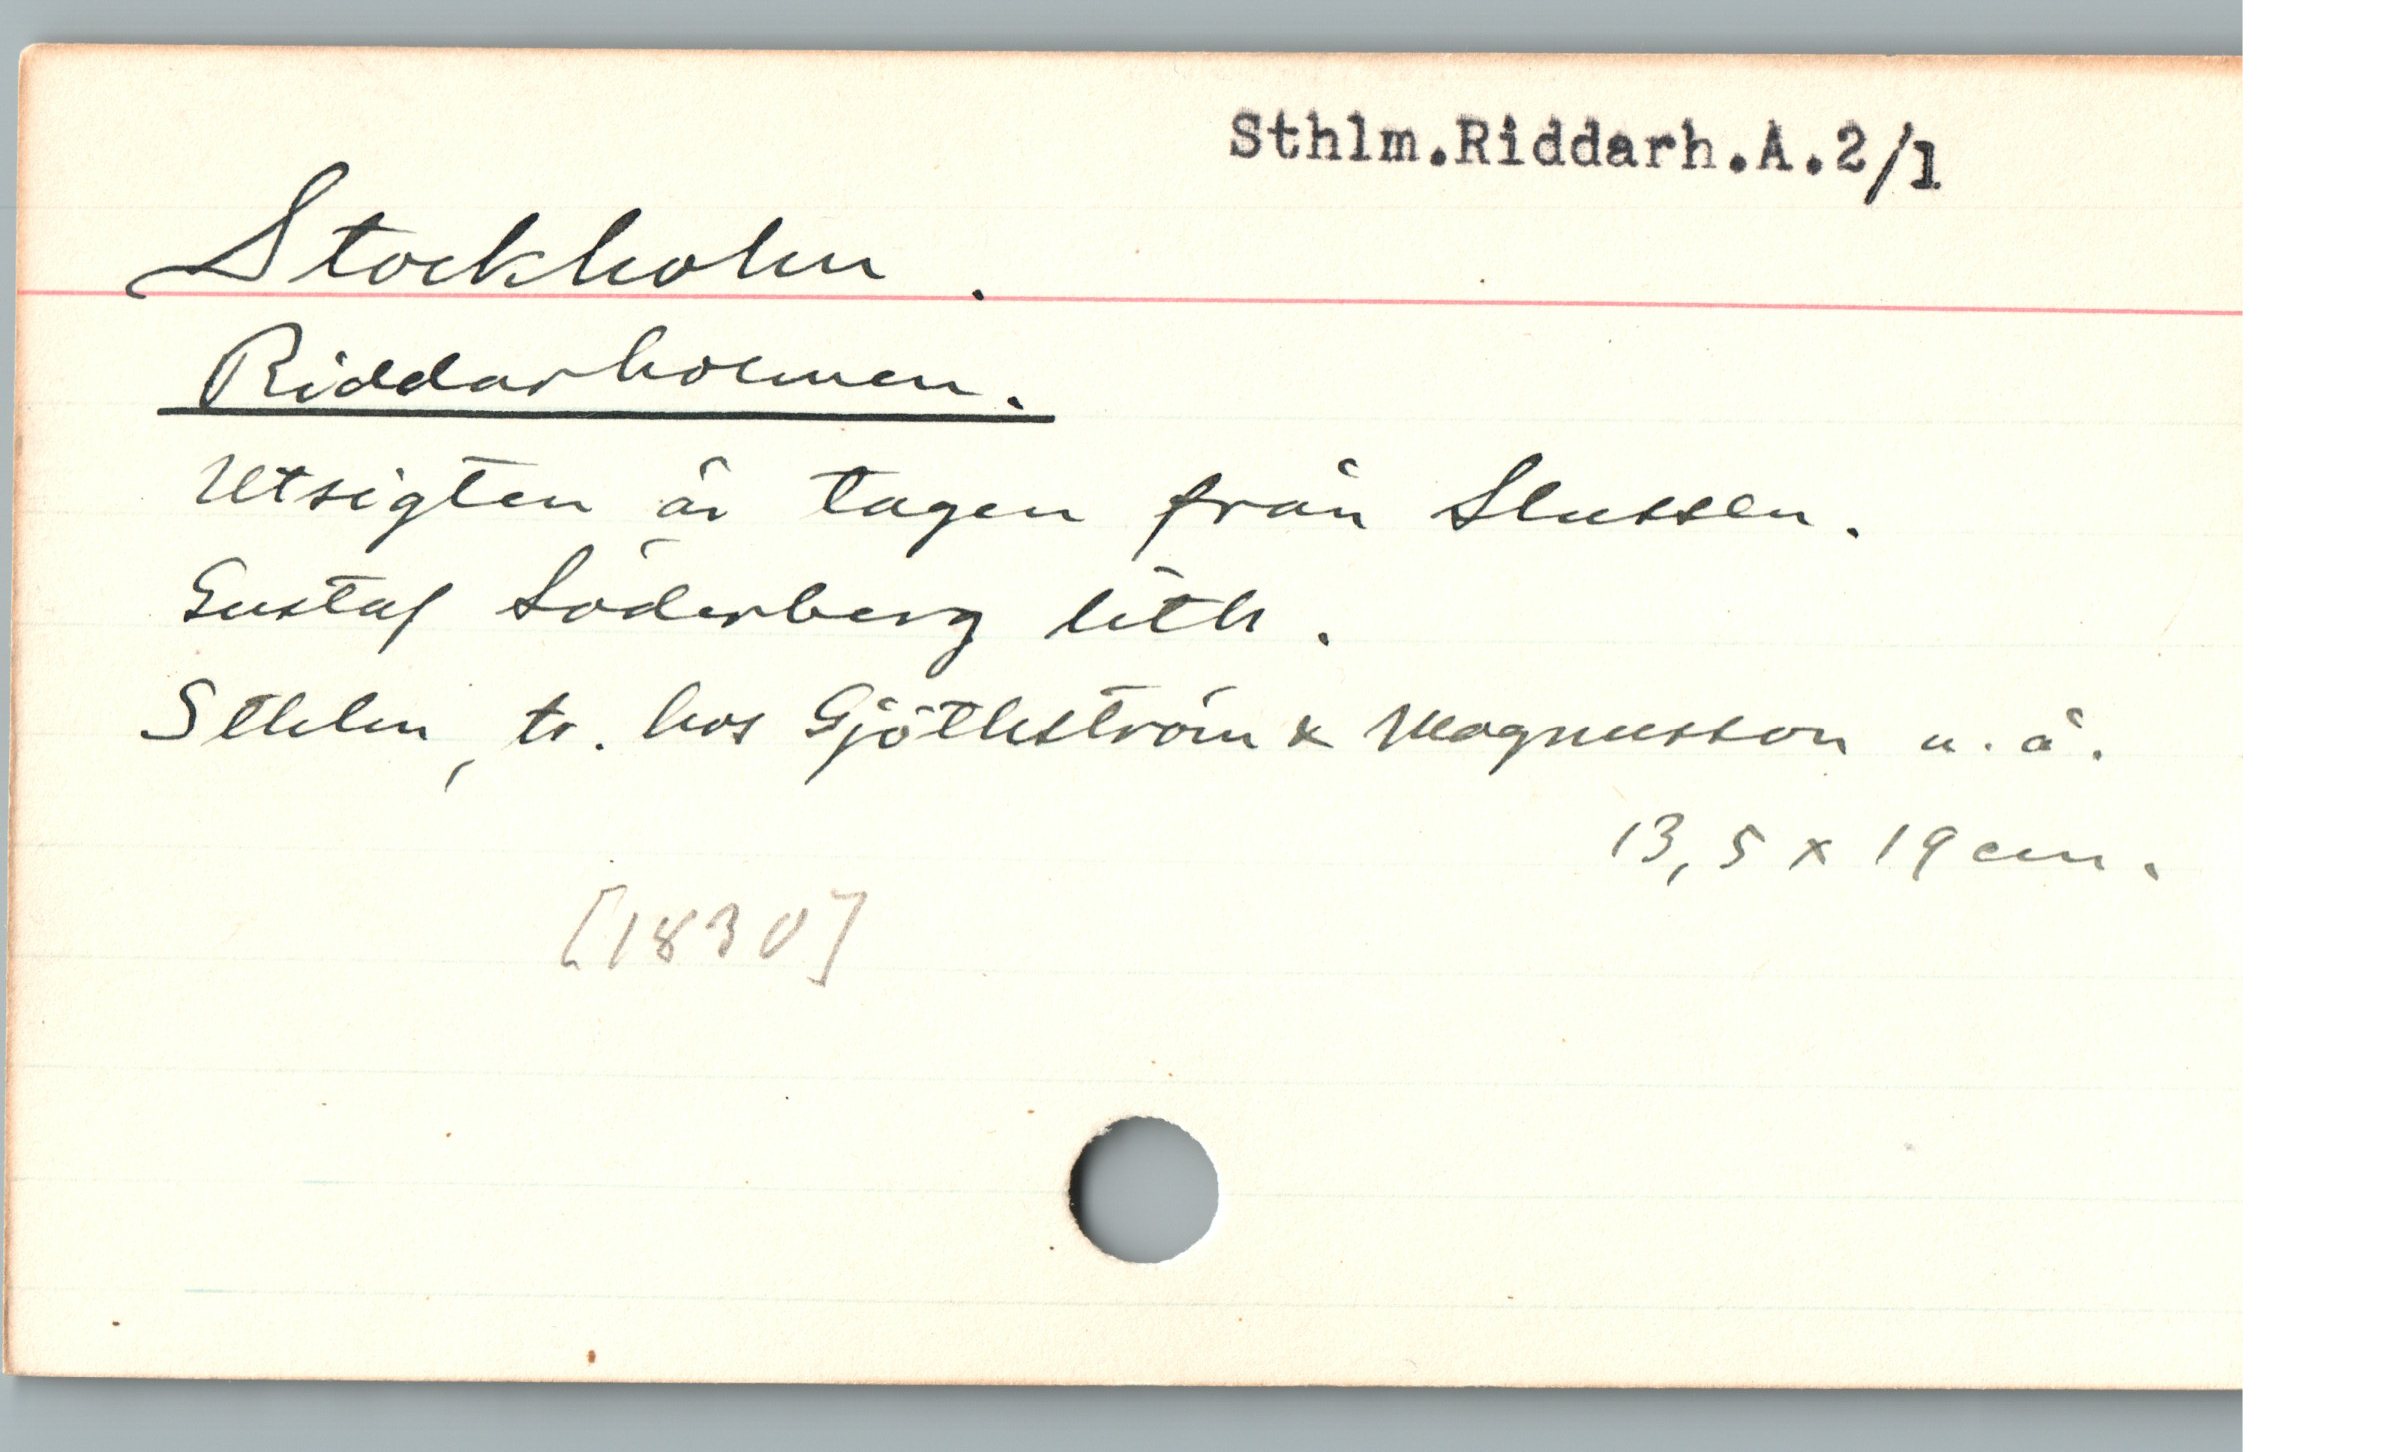 Sthlm.Riddarh.A.2/1
Stockholm.
Riddarholmen.
Utsigten är tagen från Slussen.
Gustaf Söderberg lith.
Sthlm, tr. hos Gjöthström & Magnusson u. å.
13,5 x 19 cm.
[1830]